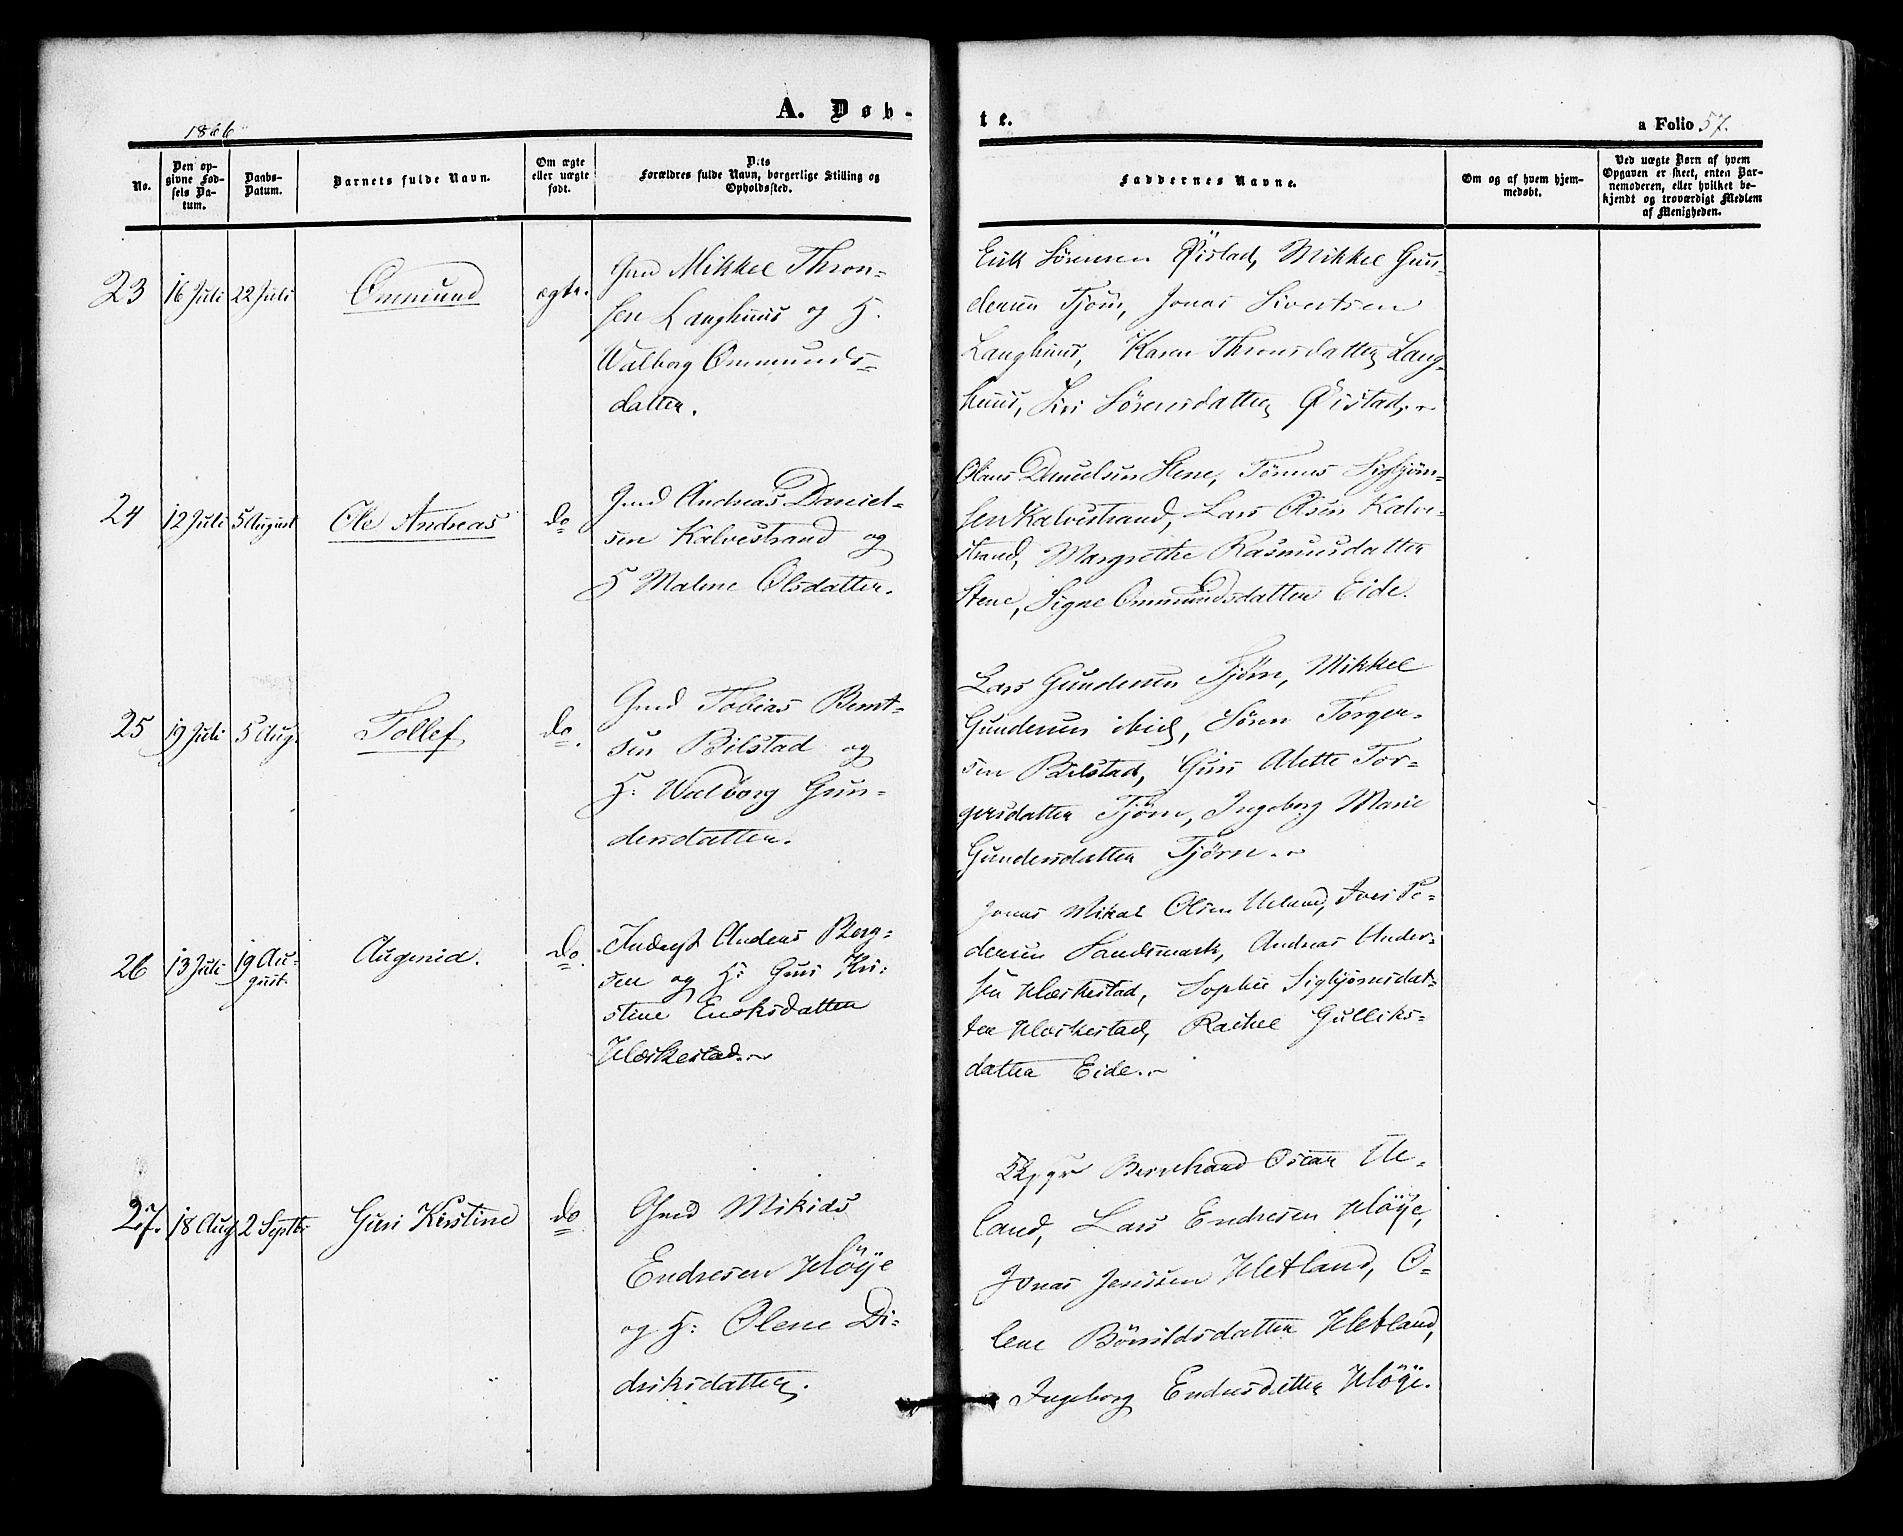 A. Døb-
te.
1866
a Folio 57.
No.
Den opgivne Fødsels Datum.
Daabs-Datum.
Barnets fulde Navn.
Om ægte eller uægte født.
Dets Forældres fulde Navn, borgerlige Stilling og Opholdssted.
Faddernes Navne.
Om og af hvem hjemmedøbt.
Ved uægte Børn af hvem Opgaven er skeet, enten Barnemoderen, eller hvilket bekjendt og troværdigt Medlem af Menigheden.
23 16 Juli 22 Juli Ommund ægte.
Gmd Mikkel Thron-
sen Langhuus og H.
Walborg Ommunds-
datter.
Erik Sørensen Øistad, Mikkel Gun-
dersen Tjörn, Jonas Sivertsen
Langhuus, Karen Thronsdatter Lang-
huus, Siri Sörensdatter Øistad.
24 12 Juli 5 August Ole Andreas do
Gmd Andreas Daniel-
sen Kalvestrand og
H Malene Olsdatter.
Olaus Danielsen Stene, Tønnes Sigbjörn-
sen Kalvestrand, Lars Olsen Kalve-
strand, Margrethe Rasmusdatter
Stene, Signe Ommundsdatter Eide.
25 19 Juli 5 Aug. Tollef do.
Gmd Tobias Bernt-
sen Bilstad og
H: Walborg Gun-
dersdatter.
Lars Gundersen Tjörn, Mikkel
Gundersen ibid, Sören Torger-
sen Bilstad, Guri Alette Tor-
gersdatter Tjörn, Ingeborg Marie
Gundersdatter Tjörn.
26 13 Juli 19 Au-
gust. Augenia. do.
Inderst Anders Berg-
sen og H: Guri Kri-
stine Eriksdatter
Hæskestad.
Jonas Mikal Olsen Ueland, Iver Pe-
dersen Sandsmark, Andreas Ander-
sen Hæskestad, Sophie Sigbjörnsdat-
ter Hæskestad, Rachel Gulliks-
datter Eide.
27. 18 Aug 2 Septbr Guri Kirstine do
Gmd Mikids
Endresen Höÿe
og H: Olene Di-
driksdatter.
Bernhard Oscar Ue-
land, Lars Endresen Höÿe,
Jonas Jenssen Hetland, O-
lene Bönildsdatter Hetland,
Ingeborg Endresdatter Höÿe.